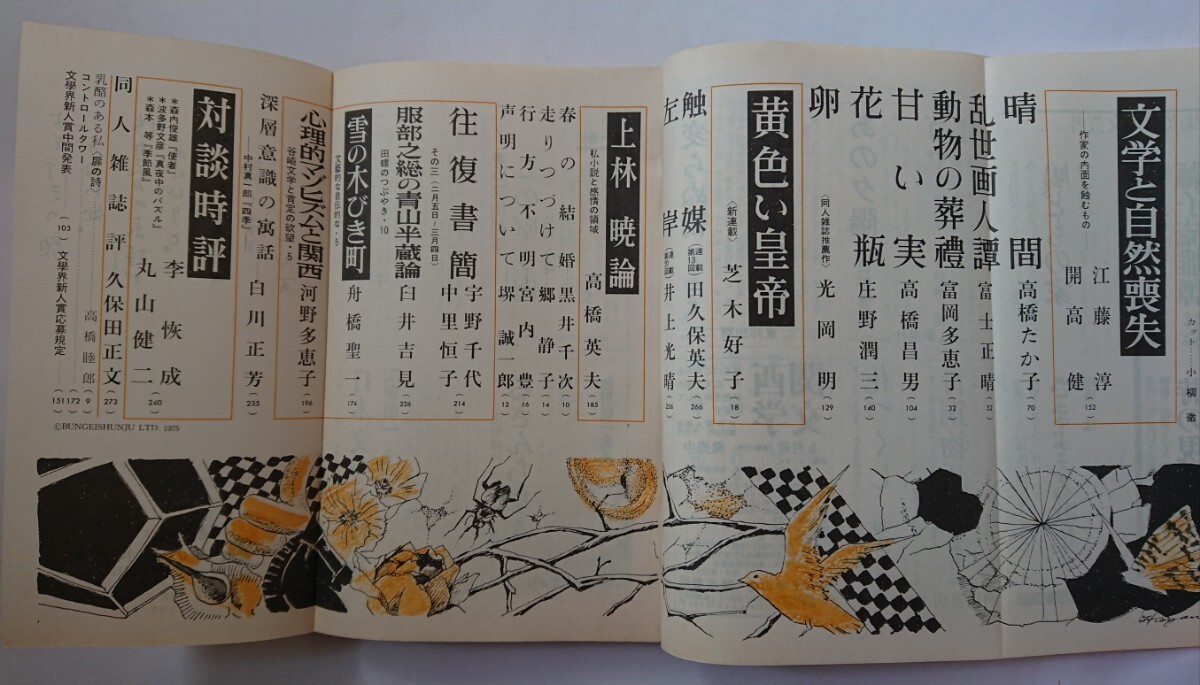 カット・小柳 徹
文学と自然喪失
──作家の内面を蝕むもの──
江藤 淳
開高 健
152
晴間 高橋たか子 (70)
乱世画人譚 富士正晴 (52)
動物の葬禮 富岡多恵子 (32)
甘い実 高橋昌男 (104)
花瓶 庄野潤三 (140)
卵 〈同人雑誌推薦作〉 光岡 明 (129)
黄色い皇帝
〈新連載〉 芝木好子 (18)
触媒 (連載第13回) 田久保英夫 (266)
左岸 井上光晴
上林 暁論
私小説と感情の領域
高橋英夫 (185)
春の結婚 黒井千次 (10)
走りつづけて 郷 静子 (14)
行方不明 宮内 豊 (16)
声明について 堺 誠一郎 (12)
往復書簡
その三(二月五日-三月四日)
宇野千代
中里恒子
214
服部之総の青山半蔵論
田螺のつぶやき・10
臼井吉見 (226)
雪の木びき町
文藝的な自伝的な・5
舟橋聖一 (174)
心理的マゾヒズムと関西
谷崎文学と肯定の欲望・5
河野多恵子 (196)
深層意識の寓話
──中村真一郎『四季』
白川正芳 (235)
対談時評
李 恢成
丸山健二
(240)
*森内俊雄『使者』
*波多野文彦『真夜中のパズル』
*森本 等『季節風』
同人雑誌評 久保田正文 (273)
乳酪のある私〈扉の詩〉 高橋睦郎 (9)
コントロールタワー (172)
文學界新人賞中間発表 (103) 文學界新人賞応募規定 (151)
©BUNGEISHUNJU LTD. 1975